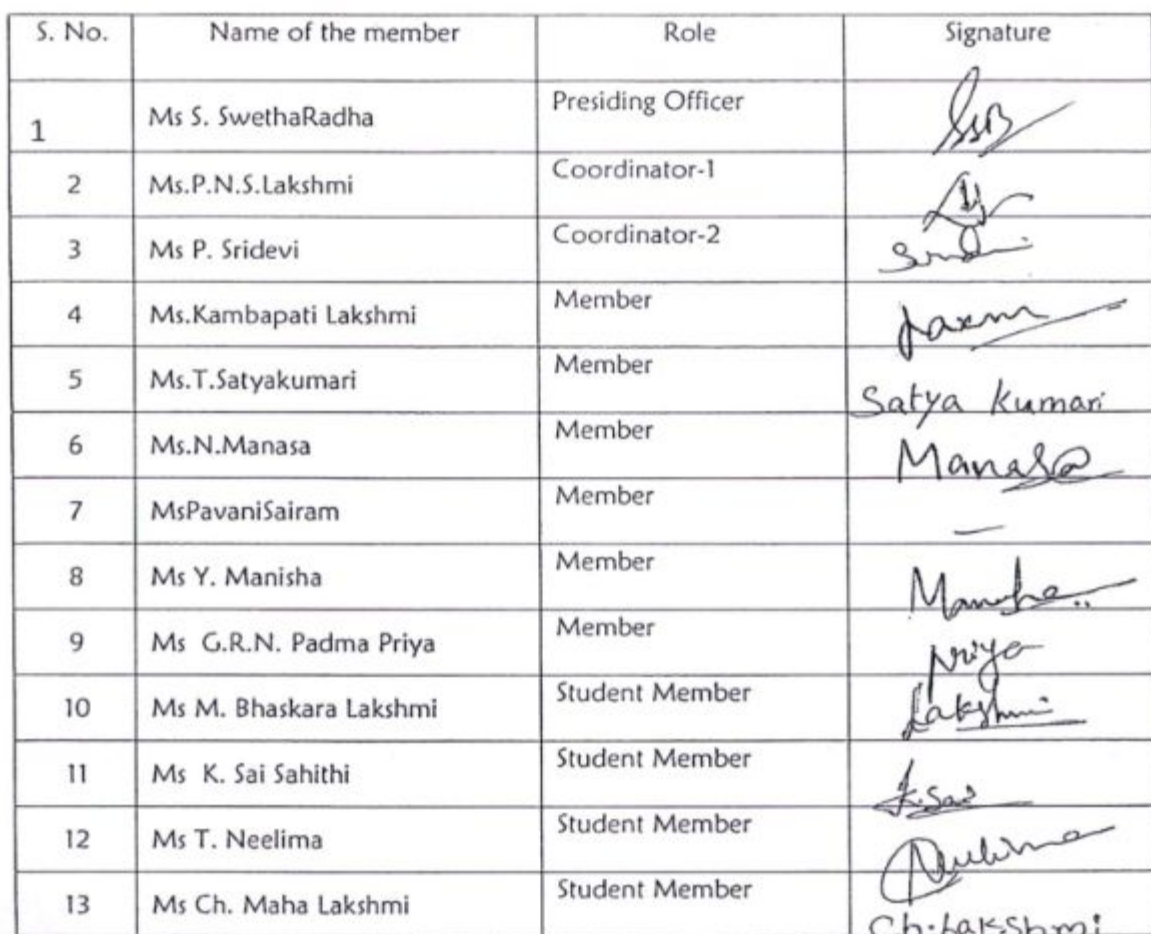 S. No. Name of the member Role Signature
1 Ms S. SwethaRadha Presiding Officer
2 Ms.P.N.S.Lakshmi Coordinator-1
3 Ms P. Sridevi Coordinator-2
4 Ms.Kambapati Lakshmi Member Laxmi
5 Ms.T.Satyakumari Member Satya Kumari
6 Ms.N.Manasa Member Manasa
7 MsPavaniSairam Member —
8 Ms Y. Manisha Member Manisha
9 Ms G.R.N. Padma Priya Member Priya
10 Ms M. Bhaskara Lakshmi Student Member Lakshmi
11 Ms K. Sai Sahithi Student Member K.Sai
12 Ms T. Neelima Student Member Neelima
13 Ms Ch. Maha Lakshmi Student Member Ch.Lakshmi